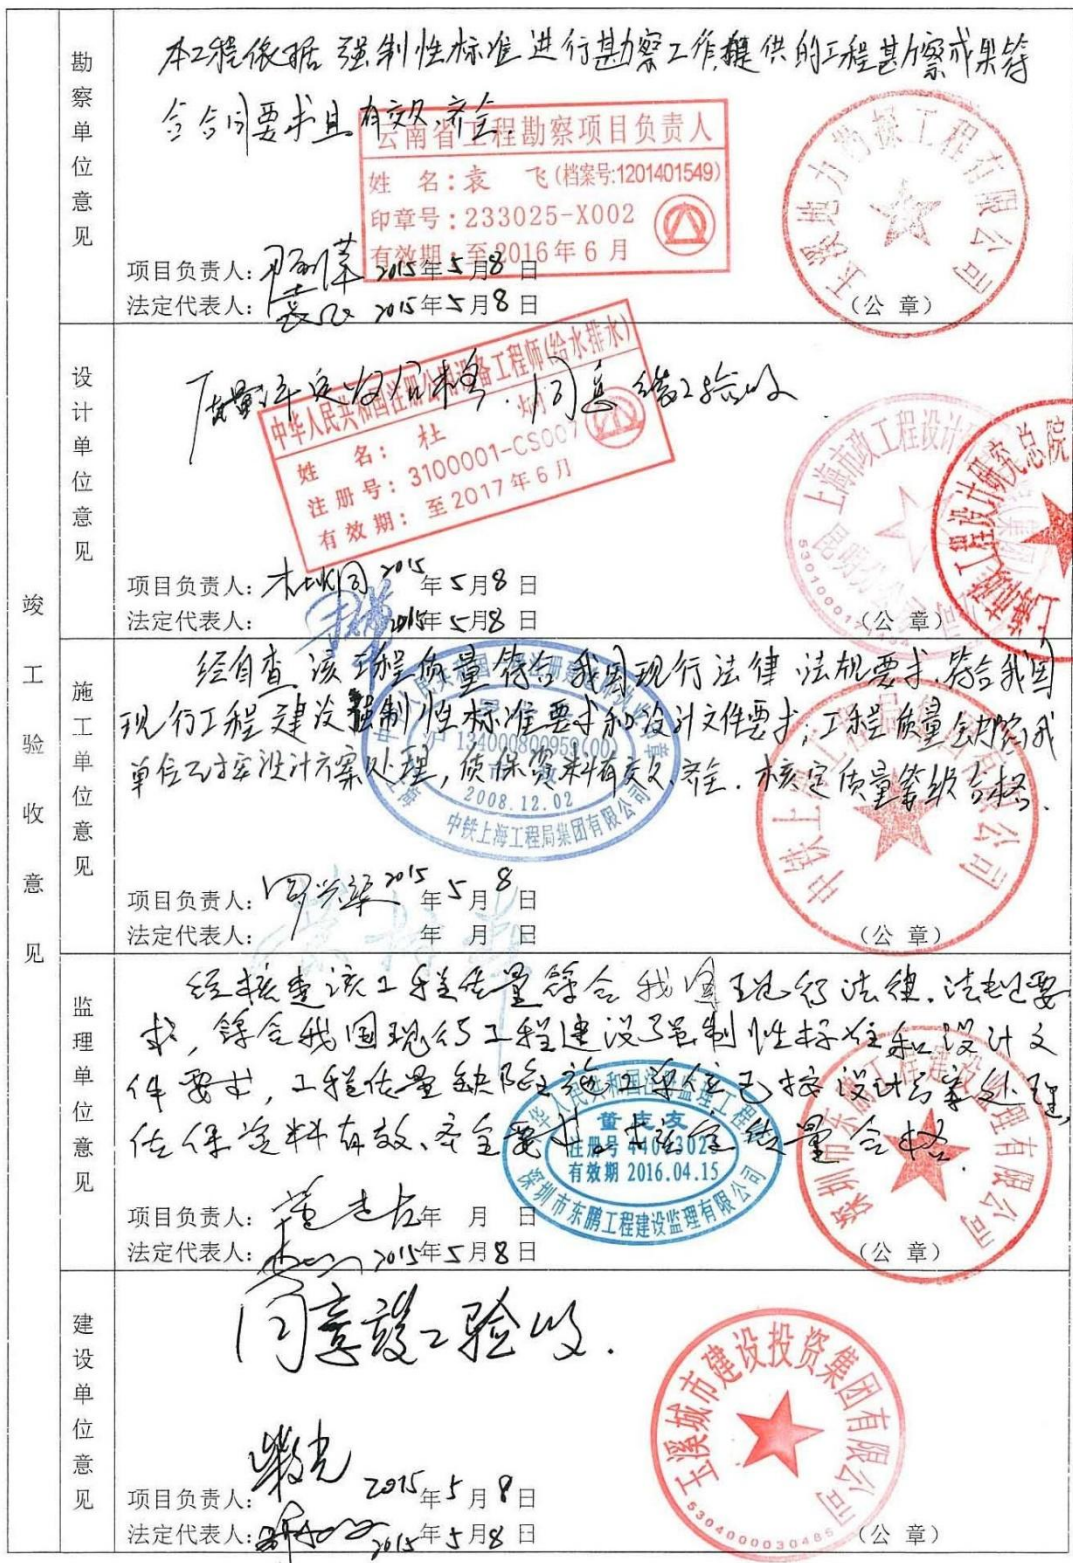 竣工验收意见
勘察单位意见
本工程依据强制性标准进行勘察工作,提供的工程勘察成果符
合合同要求且有效、齐全.
云南省工程勘察项目负责人
姓 名:袁 飞(档案号:1201401549)
印章号:233025-X002
有效期:至2016年6月
项目负责人: 2015年5月8日
法定代表人: 2015年5月8日
(公 章)
设计单位意见
同意竣工验收
中华人民共和国注册公用设备工程师(给水排水)
姓 名: 杜
注册号: 3100001-CS007
有效期: 至2017年6月
上海市政工程设计研究总院
项目负责人: 2015年5月8日
法定代表人: 2015年5月8日
(公 章)
施工单位意见
经自查,该工程质量符合我国现行法律、法规要求,符合我国
现行工程建设强制性标准要求和设计文件要求;工程质量缺陷我
单位已按设计方案处理,质保资料有效、齐全.核定质量等级合格.
2008.12.02
中铁上海工程局集团有限公司
项目负责人: 2015年5月8日
法定代表人: 年 月 日
(公 章)
监理单位意见
经核查该工程质量符合我国现行法律、法规要
求,符合我国现行工程建设强制性标准和设计文
件要求,工程质量缺陷施工单位已按设计方案处理
质保资料有效、齐全
质量合格.
有效期 2016.04.15
深圳市东鹏工程建设监理有限公司
深圳市东鹏工程建设监理有限公司
项目负责人: 年 月 日
法定代表人: 2015年5月8日
(公 章)
建设单位意见
同意竣工验收.
玉溪城市建设投资集团有限公司
5304000030486
项目负责人: 2015年5月8日
法定代表人: 2015年5月8日
(公 章)